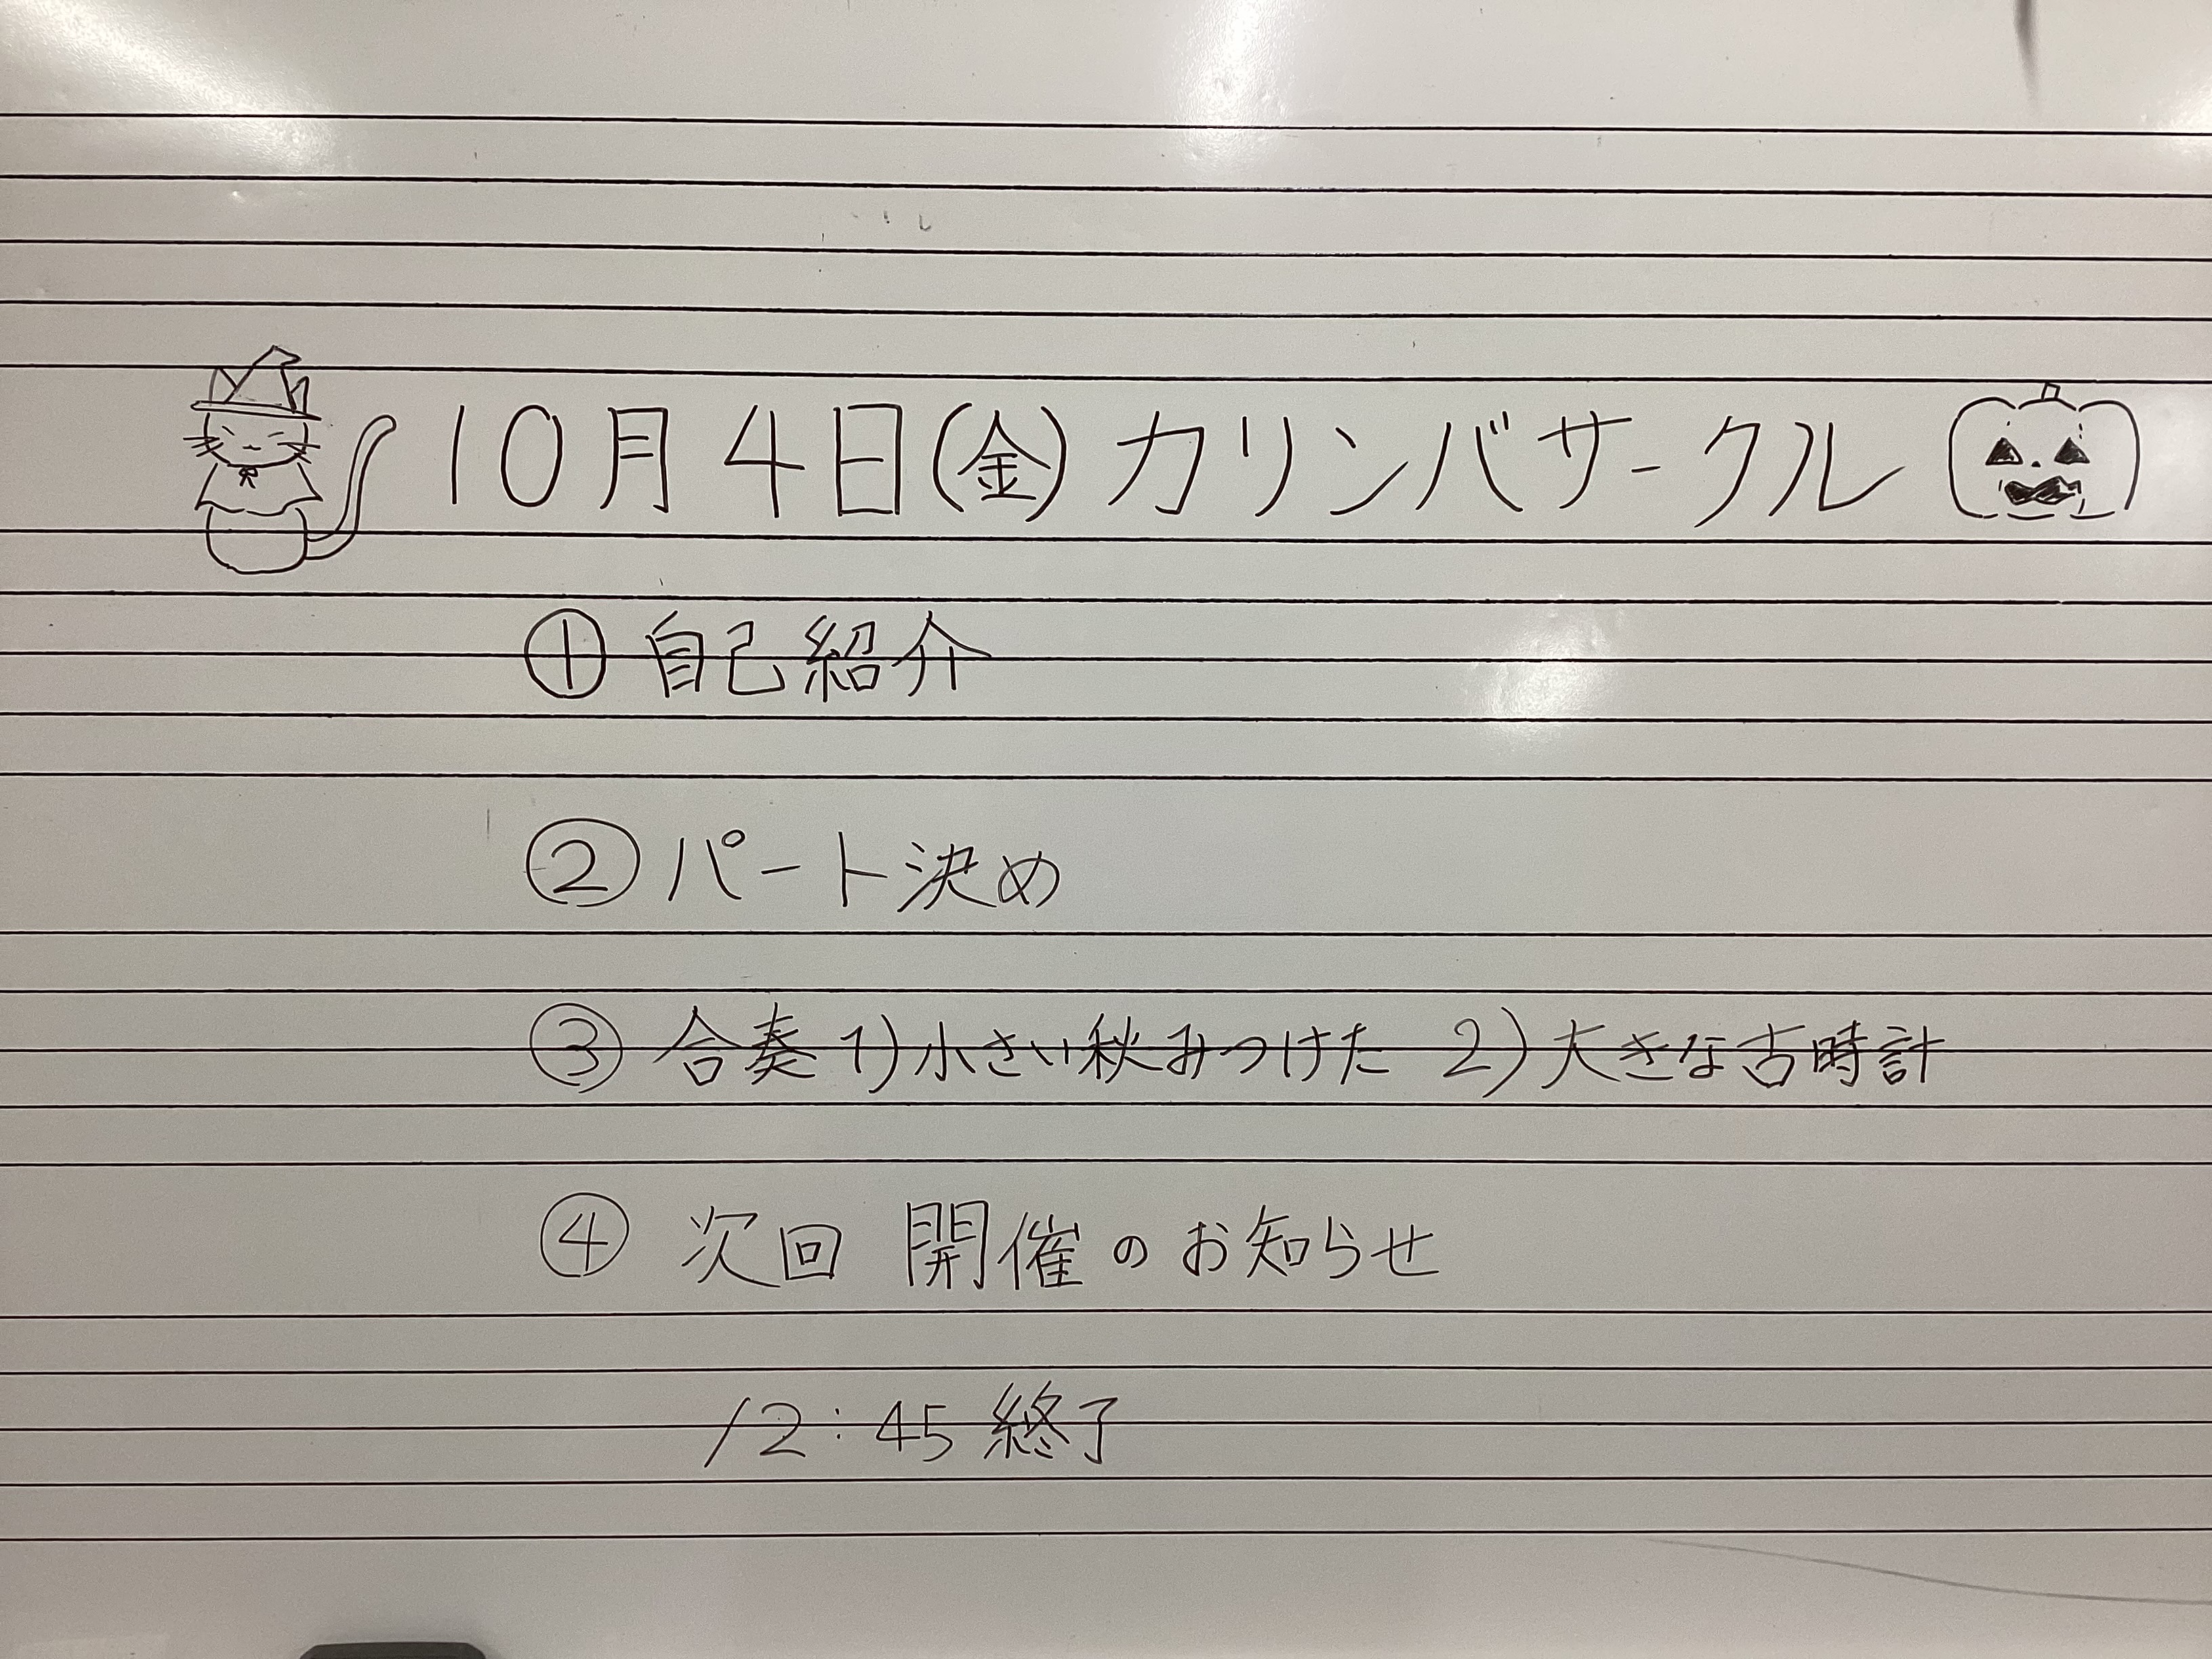 10月4日(金)カリンバサークル
①自己紹介
②パート決め
③合奏 1)小さい秋みつけた 2)大きな古時計
④次回 開催のお知らせ
12:45 終了